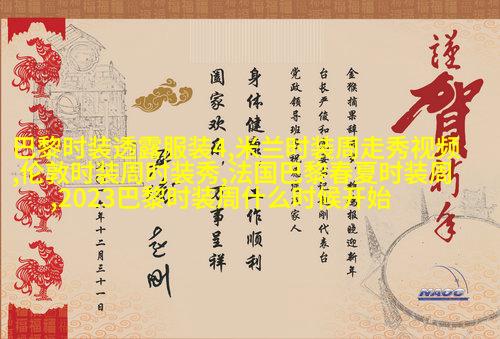 巴黎时装透露服装4,米兰时装周走秀视频
,伦敦时装周时装秀,法国巴黎春夏时装周
,2023巴黎时装周什么时候开始
謹賀新年
金猴摘果辞报晓迎新年
台长严俊和刚代表台
党政领导班家人
身体健作顺利
阖家欢事呈祥
年十二月三十一日
NAOC